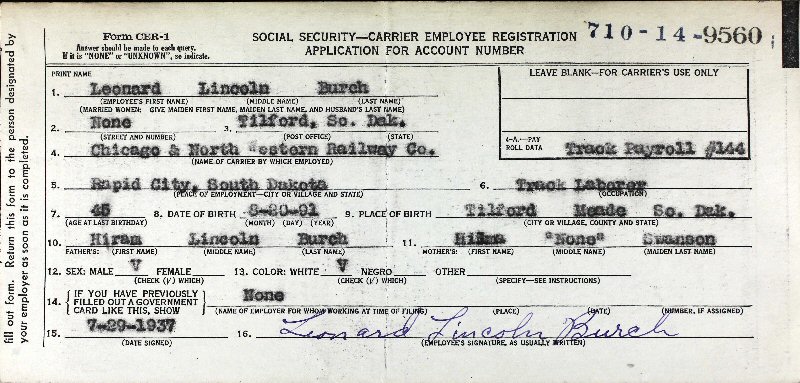 Form CER-1
Answer should be made to each query.
If it is "NONE" or "UNKNOWN", so indicate.
SOCIAL SECURITY—CARRIER EMPLOYEE REGISTRATION
APPLICATION FOR ACCOUNT NUMBER
710-14-9560
fill out form. Return this form to the person designated by
your employer as soon as it is completed.
PRINT NAME
1. Leonard Lincoln Burch
(EMPLOYEE'S FIRST NAME) (MIDDLE NAME) (LAST NAME)
(MARRIED WOMEN: GIVE MAIDEN FIRST NAME, MAIDEN LAST NAME, AND HUSBAND'S LAST NAME)
LEAVE BLANK—FOR CARRIER'S USE ONLY
2. None 3. Tilford, So. Dak.
(STREET AND NUMBER) (POST OFFICE) (STATE)
4. Chicago & North Western Railway Co.
(NAME OF CARRIER BY WHICH EMPLOYED)
4-A.—PAY
ROLL DATA Track Payroll #144
5. Rapid City, South Dakota 6. Track Laborer
(PLACE OF EMPLOYMENT—CITY OR VILLAGE AND STATE) (OCCUPATION)
7. 45 8. DATE OF BIRTH 8-20-91 9. PLACE OF BIRTH Tilford Meade So. Dak.
(AGE AT LAST BIRTHDAY) (MONTH) (DAY) (YEAR) (CITY OR VILLAGE, COUNTY AND STATE)
10. Hiram Lincoln Burch 11. Hilma "None" Swanson
FATHER'S: (FIRST NAME) (MIDDLE NAME) (LAST NAME) MOTHER'S: (FIRST NAME) (MIDDLE NAME) (MAIDEN LAST NAME)
12. SEX: MALE V FEMALE 13. COLOR: WHITE V NEGRO OTHER
(CHECK (√) WHICH) (CHECK (√) WHICH) (SPECIFY—SEE INSTRUCTIONS)
14. IF YOU HAVE PREVIOUSLY FILLED OUT A GOVERNMENT CARD LIKE THIS, SHOW None
(NAME OF EMPLOYER FOR WHOM WORKING AT TIME OF FILING) (PLACE) (DATE) (NUMBER, IF ASSIGNED)
15. 7-29-1937 16. Leonard Lincoln Burch
(DATE SIGNED) (EMPLOYEE'S SIGNATURE, AS USUALLY WRITTEN)